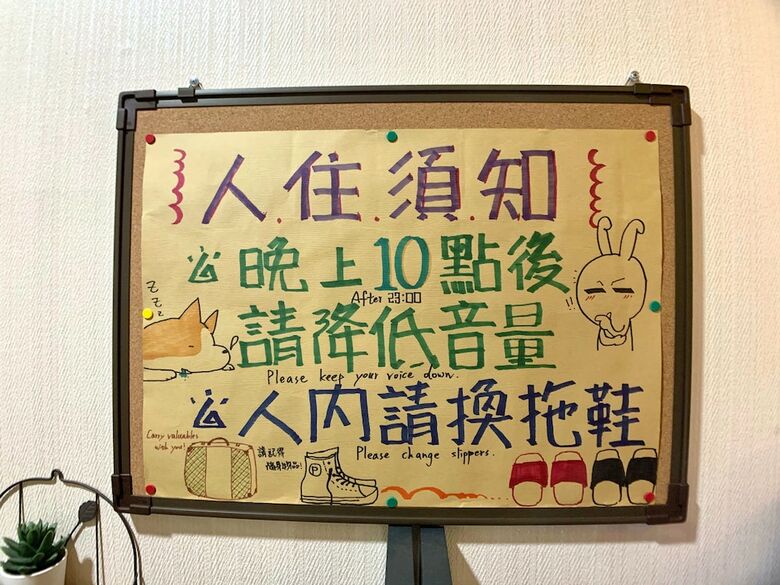 人.住.須.知
晚上10點後
After 23:00
請降低音量
Please keep your voice down.
人內請換拖鞋
Please change slippers.
Carry valuables
with you!
請記得
隨身物品!
Z
Z
Z
!!
P